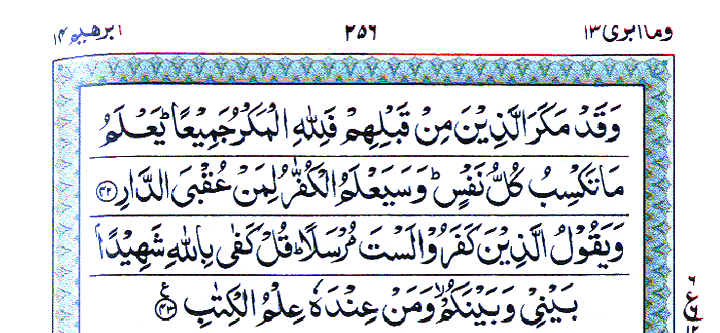 وما ابرئ ١٣
٢٥٦
ابرهيم ١٤
وَقَدْ مَكَرَ الَّذِيْنَ مِنْ قَبْلِهِمْ فَلِلّٰهِ الْمَكْرُ جَمِيْعًا ؕ يَعْلَمُ
مَا تَكْسِبُ كُلُّ نَفْسٍ ؕ وَسَيَعْلَمُ الْكُفّٰرُ لِمَنْ عُقْبَى الدَّارِ ۝٤٢
وَيَقُوْلُ الَّذِيْنَ كَفَرُوْا لَسْتَ مُرْسَلًا ؕ قُلْ كَفٰى بِاللّٰهِ شَهِيْدًۢا
بَيْنِيْ وَبَيْنَكُمْ ۙ وَمَنْ عِنْدَهٗ عِلْمُ الْكِتٰبِ ۝٤٣ ع
٦
ع
١٢